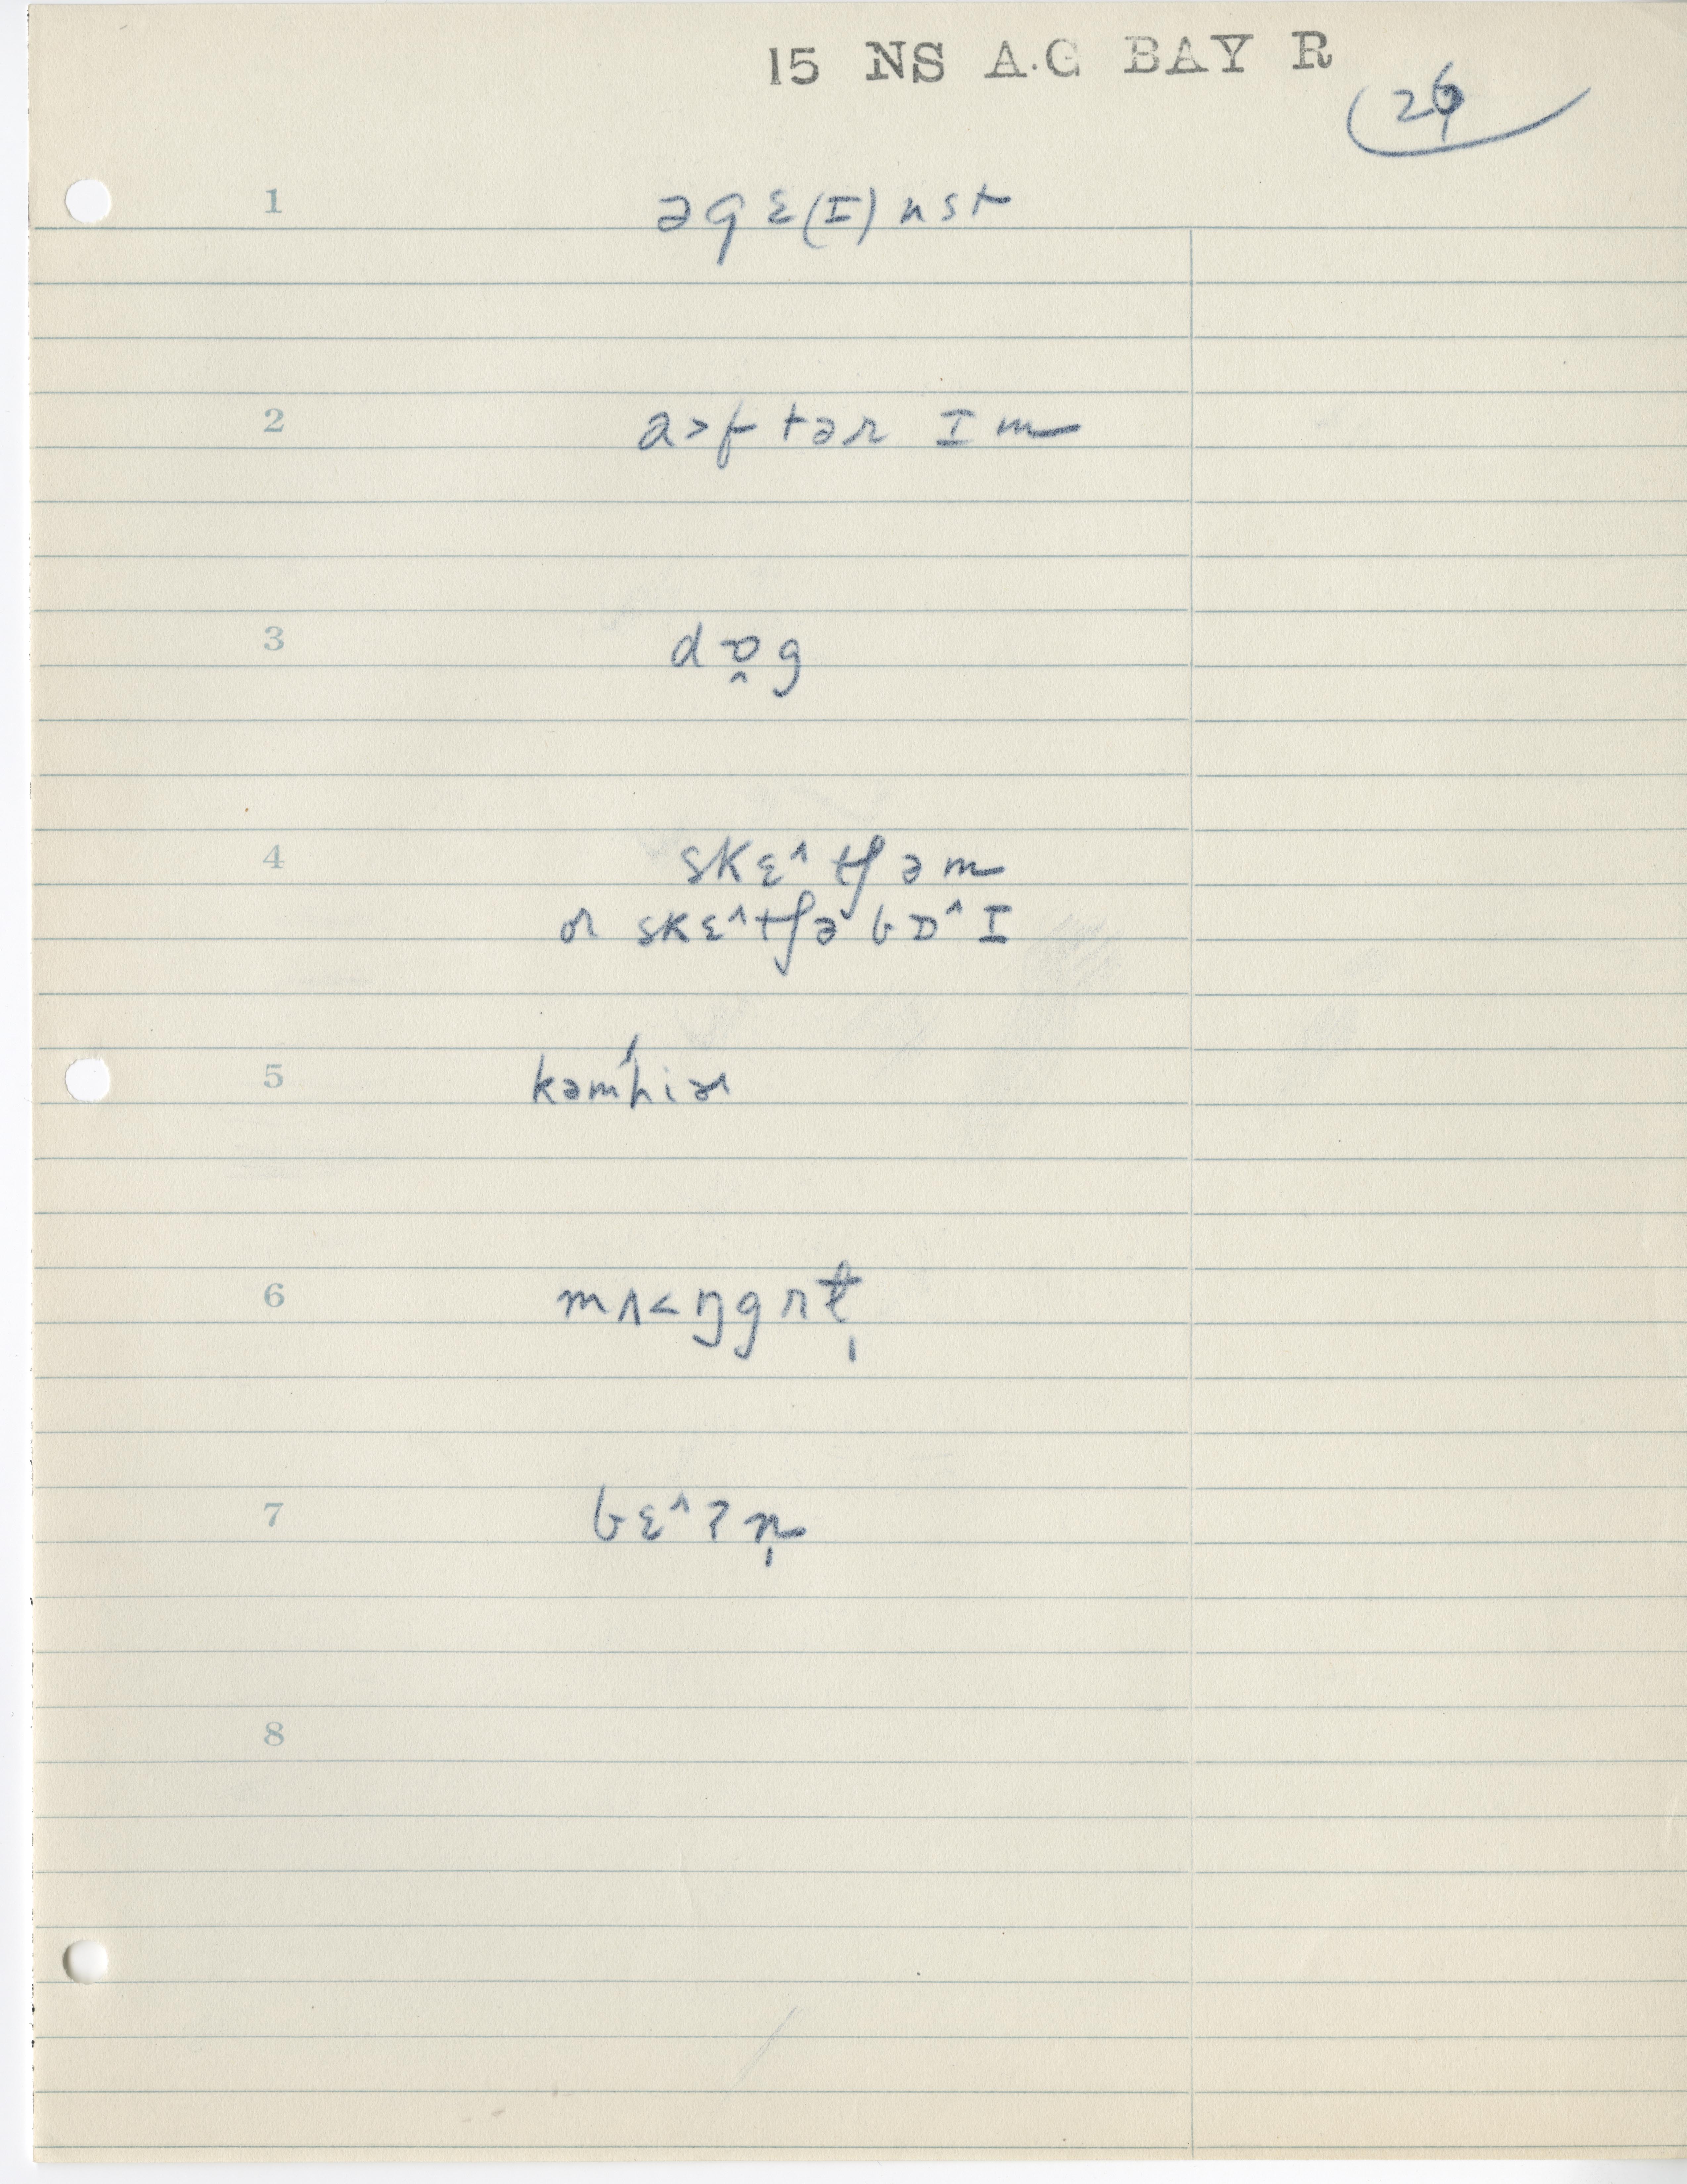 15 NS A.G BAY R
26
1 əgɛ(I)nst
2 a>ftər Im
3 dɒ̭g
4 skɛ^tʃəm
or skɛ^tʃə bɒ^I
5 kəm'hiər
6 mʌ<ŋgrɫ̩
7 bɛ^ʔn̩
8